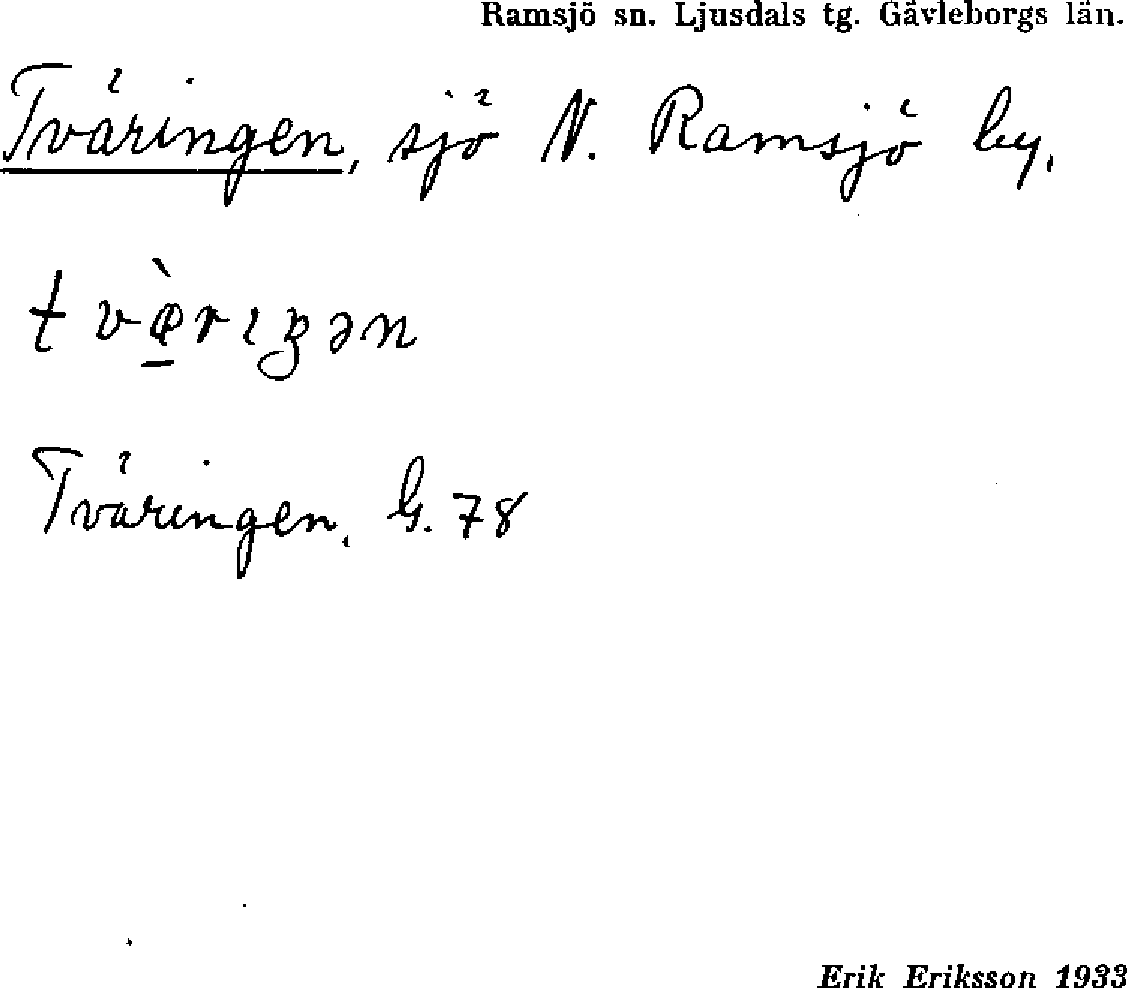 Ramsjö sn. Ljusdals tg. Gävleborgs län.
Tväringen, sjö N. Ramsjö by.
tvæ̠̀rɪŋən
Tväringen. G. 78
Erik Eriksson 1933